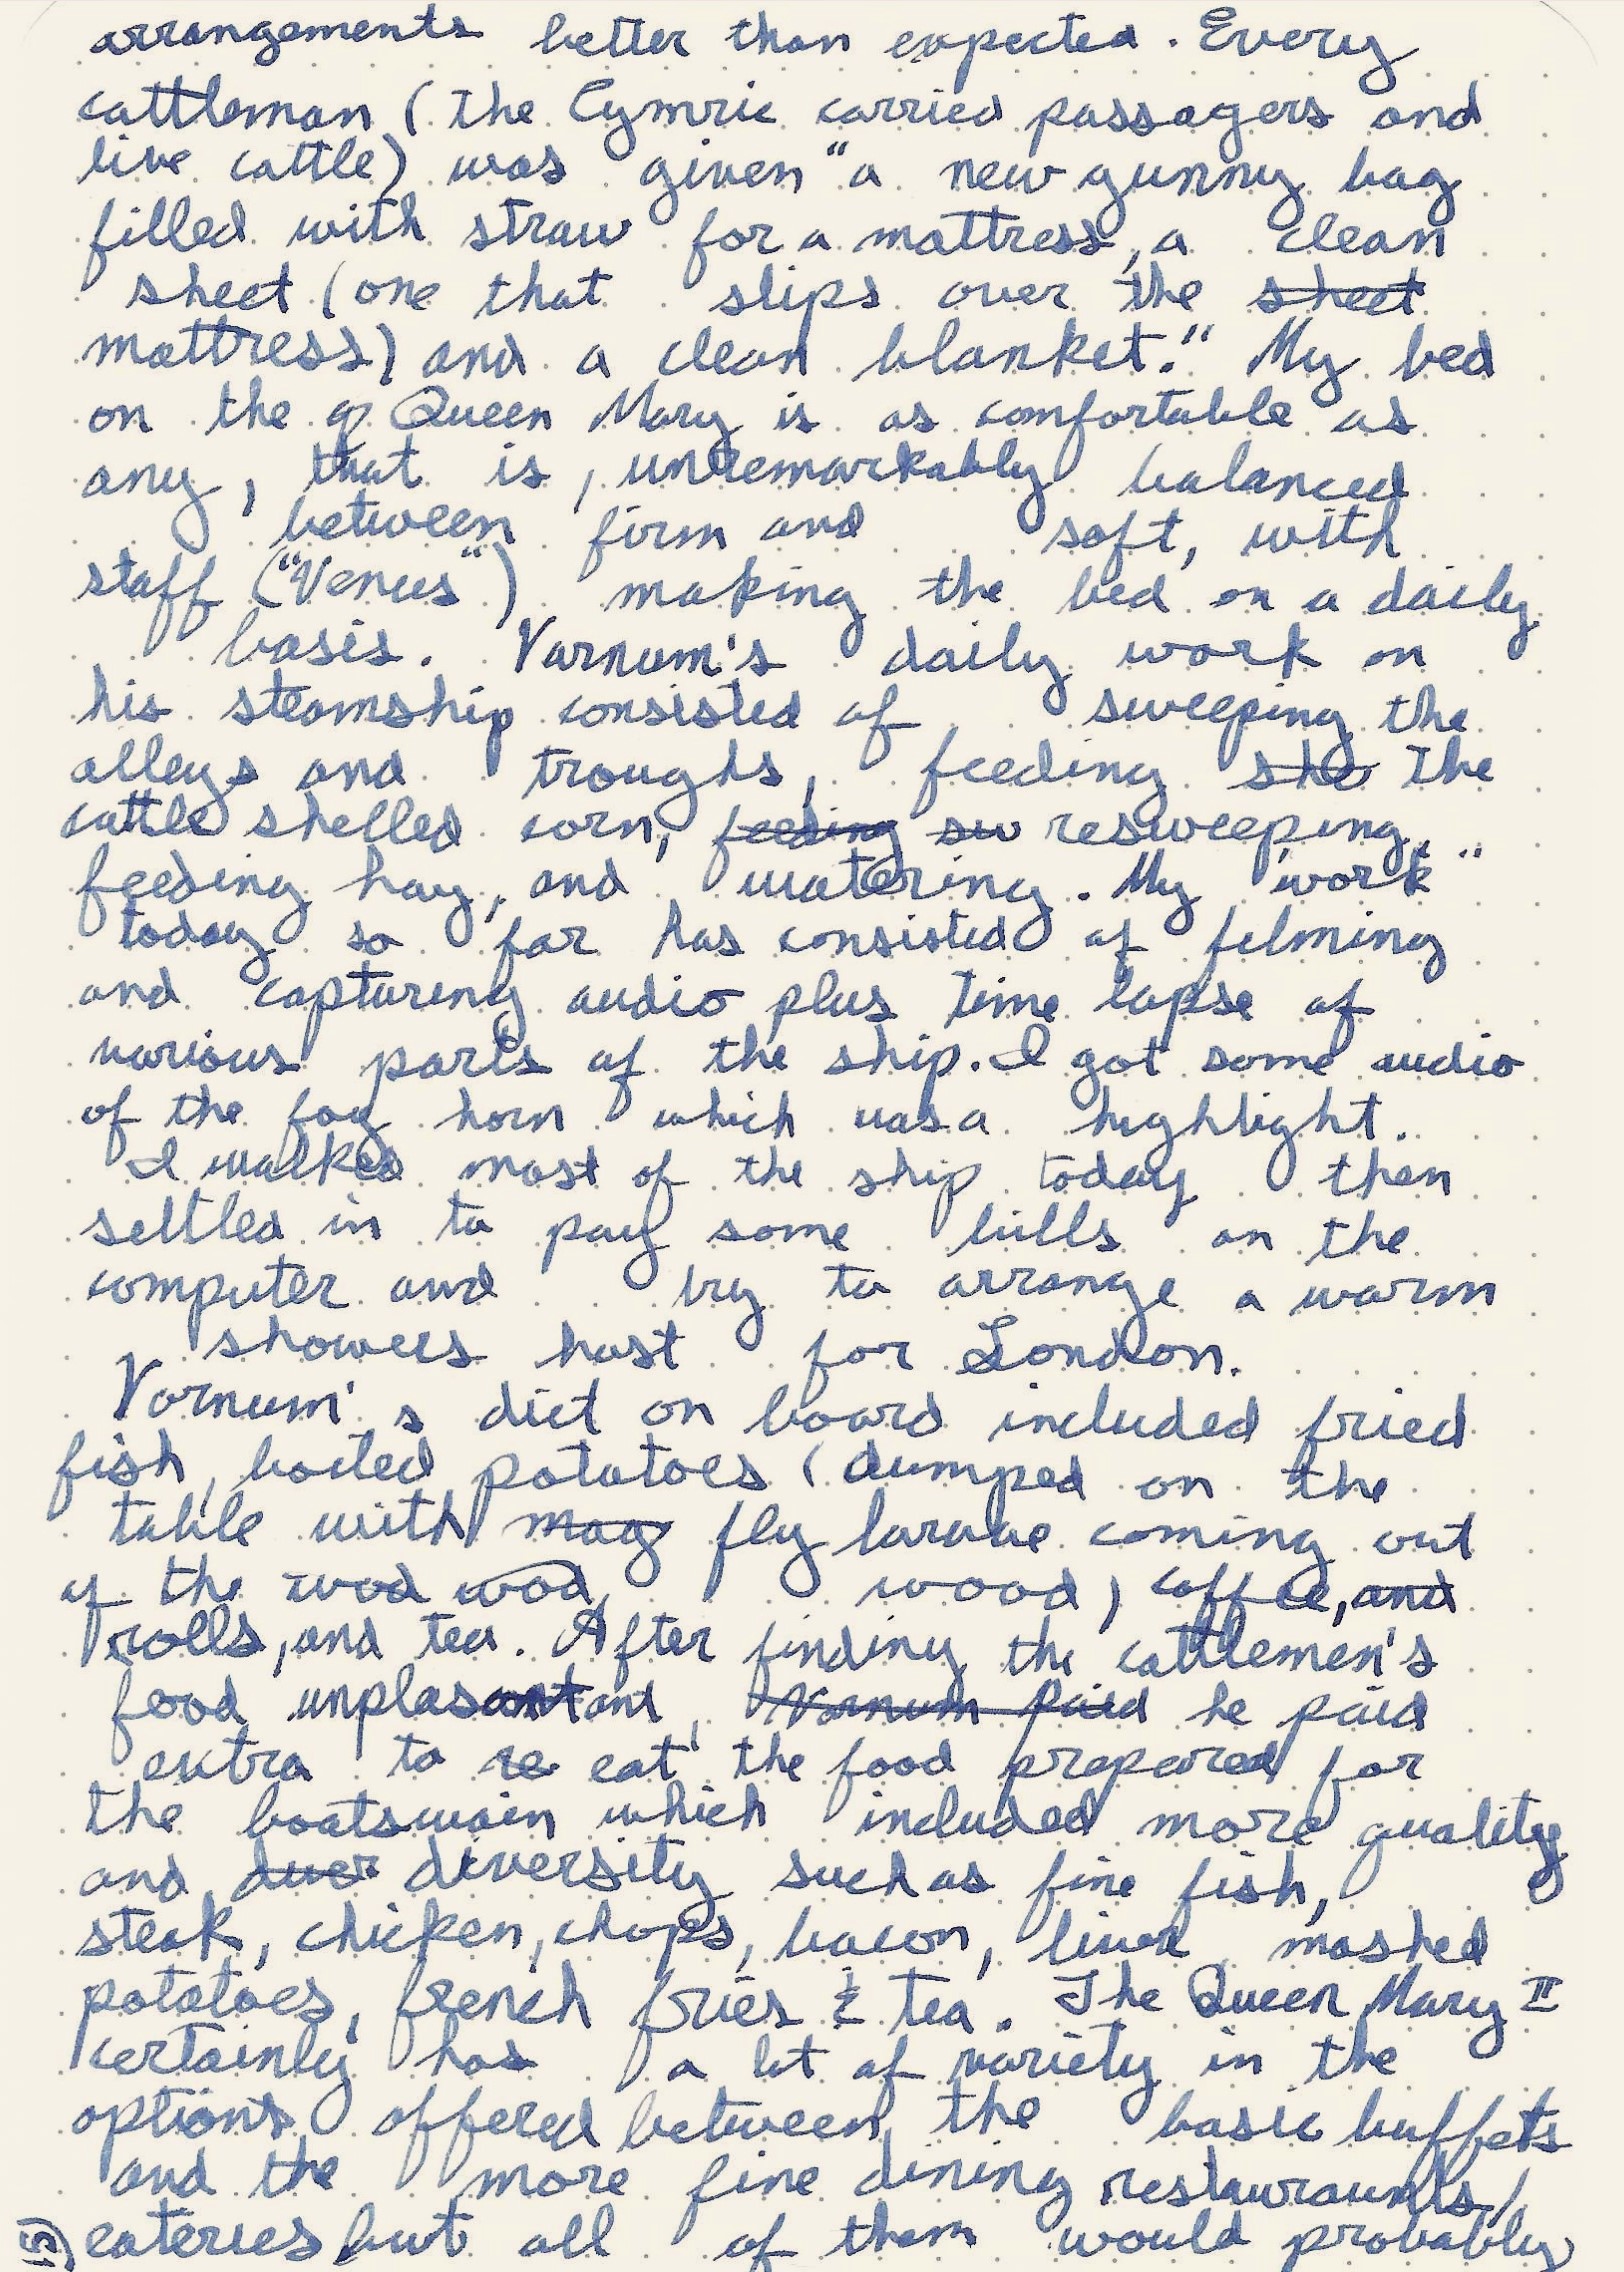 arrangements better than expected. Every
cattleman (the Cymric carried passagers and
live cattle) was given "a new gunny bag
filled with straw for a mattress, a clean
sheet (one that slips over the sheet
mattress) and a clean blanket." My bed
on the q Queen Mary is as comfortable as
any, that is, unremarkably balanced
between firm and soft, with
staff ("Venus") making the bed on a daily
basis. Varnum's daily work on
his steamship consisted of sweeping the
alleys and troughs, feeding she the
cattle shelled corn, feeding sw resweeping,
feeding hay, and watering. My "work"
today so far has consisted of filming
and capturing audio plus time lapse of
various parts of the ship. I got some audio
of the fog horn which was a highlight.
I walked most of the ship today then
settled in to pay some bills on the
computer and try to arrange a warm
showers host for London.
Varnum's diet on board included fried
fish, boiled potatoes (dumped on the
table with mag fly larvae coming out
of the wod wod wood) coffee, and
rolls, and tea. After finding the cattlemen's
food unplasantant, Varnum paid he paid
extra to re eat the food prepared for
the boatswain which included more quality
and duer diversity such as fine fish,
steak, chicken, chops, bacon, liver, mashed
potatoes, french fries & tea. The Queen Mary II
certainly has a lot of variety in the
options offered between the basic buffets
and the more fine dining restauraunts/
15) eateries but all of them would probably